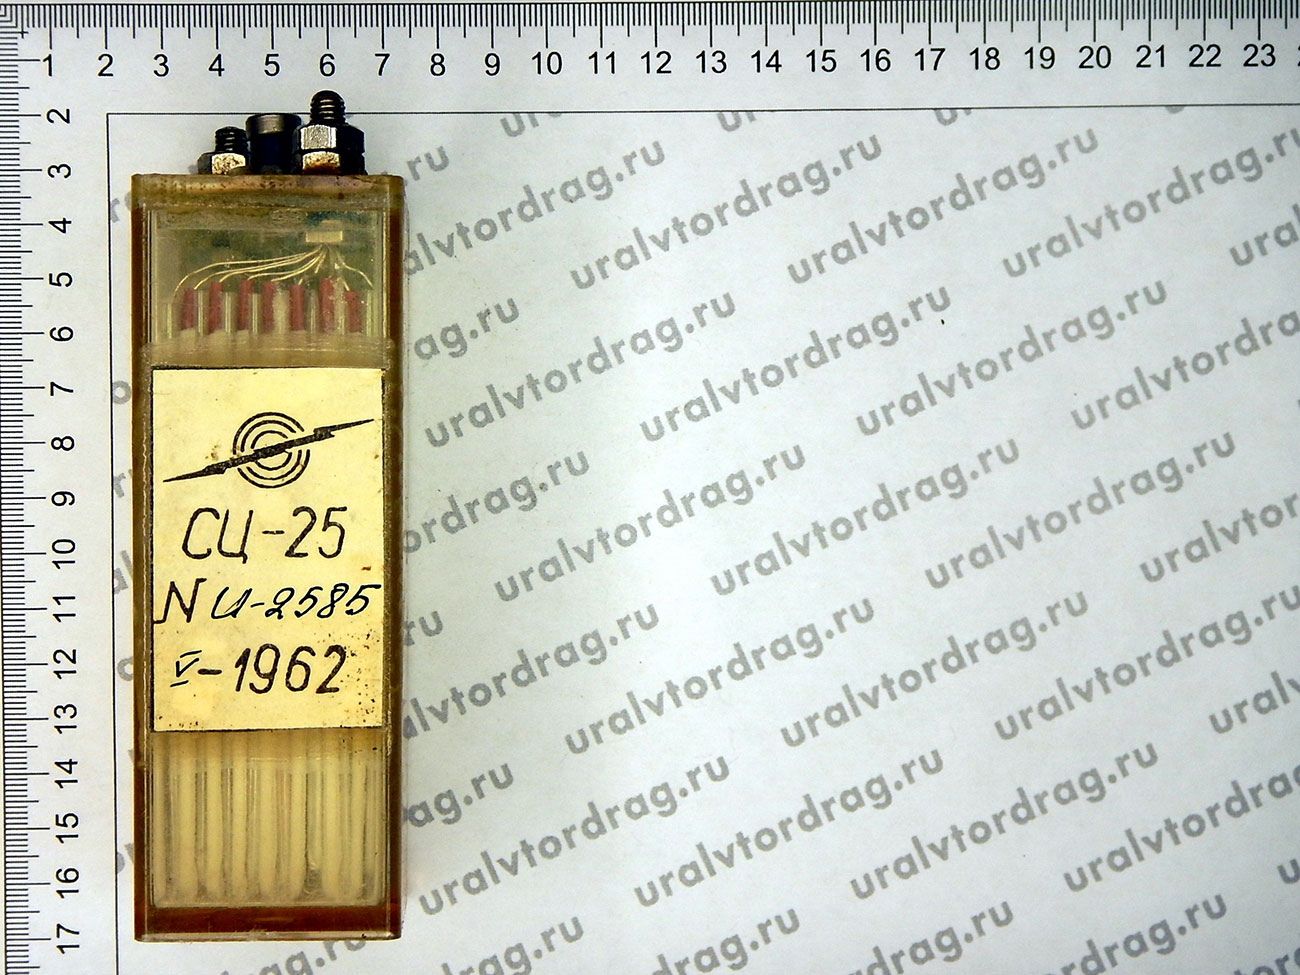 1 2 3 4 5 6 7 8 9 10 11 12 13 14 15 16 17 18 19 20 21 22 23
2
3
4
5
6
7
8
9
10
11
12
13
14
15
16
17
СЦ-25
N И-2585
V-1962
uralvtordrag.ru